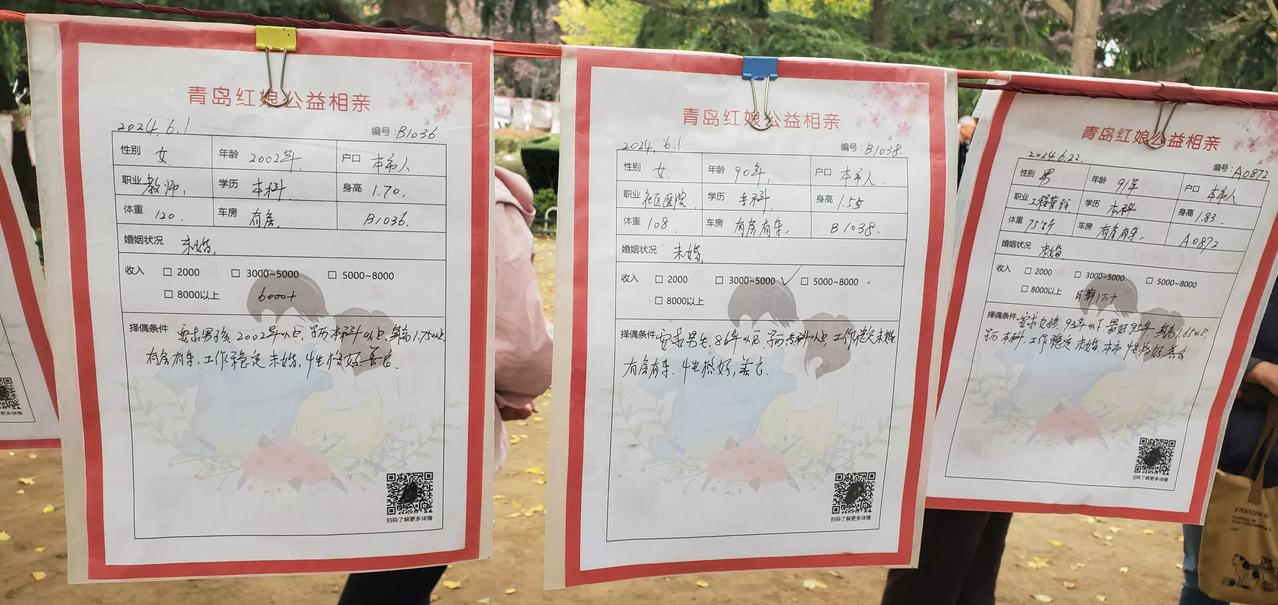 青岛红娘公益相亲
2024.6.1 编号:B1036
性别 女 年龄 2002年 户口 本市人
职业 教师 学历 本科 身高 1.70
体重 120 车房 有房 B1036
婚姻状况 未婚
收入 2000 3000~5000 5000~8000
8000以上 6000+
择偶条件 要求男孩, 2002年以上, 学历本科以上, 身高1.75以上
有房有车, 工作稳定 未婚, 性格好, 善良.
扫码了解更多详情
青岛红娘公益相亲
2024.6.1 编号:B1038
性别 女 年龄 90年 户口 本市人
职业 社区医院 学历 专科 身高 1.55
体重 108 车房 有房有车 B1038
婚姻状况 未婚
收入 2000 3000~5000 ✓ 5000~8000
8000以上
择偶条件 要求男生, 86年以上 学历专科以上 工作稳定 未婚
有房有车, 性格好, 善良.
扫码了解更多详情
青岛红娘公益相亲
2024.6.22 编号:A0872
性别 男 年龄 91年 户口 本市人
职业 工程 学历 本科 身高 1.83
体重 75 车房 有房有车 A0872
婚姻状况 未婚
收入 2000 3000~5000 5000~8000
8000以上 月薪1万+
择偶条件 要求女孩, 93年以下 身高1.65以上
学历本科, 工作稳定 未婚, 本市 性格好 善良
扫码了解更多详情